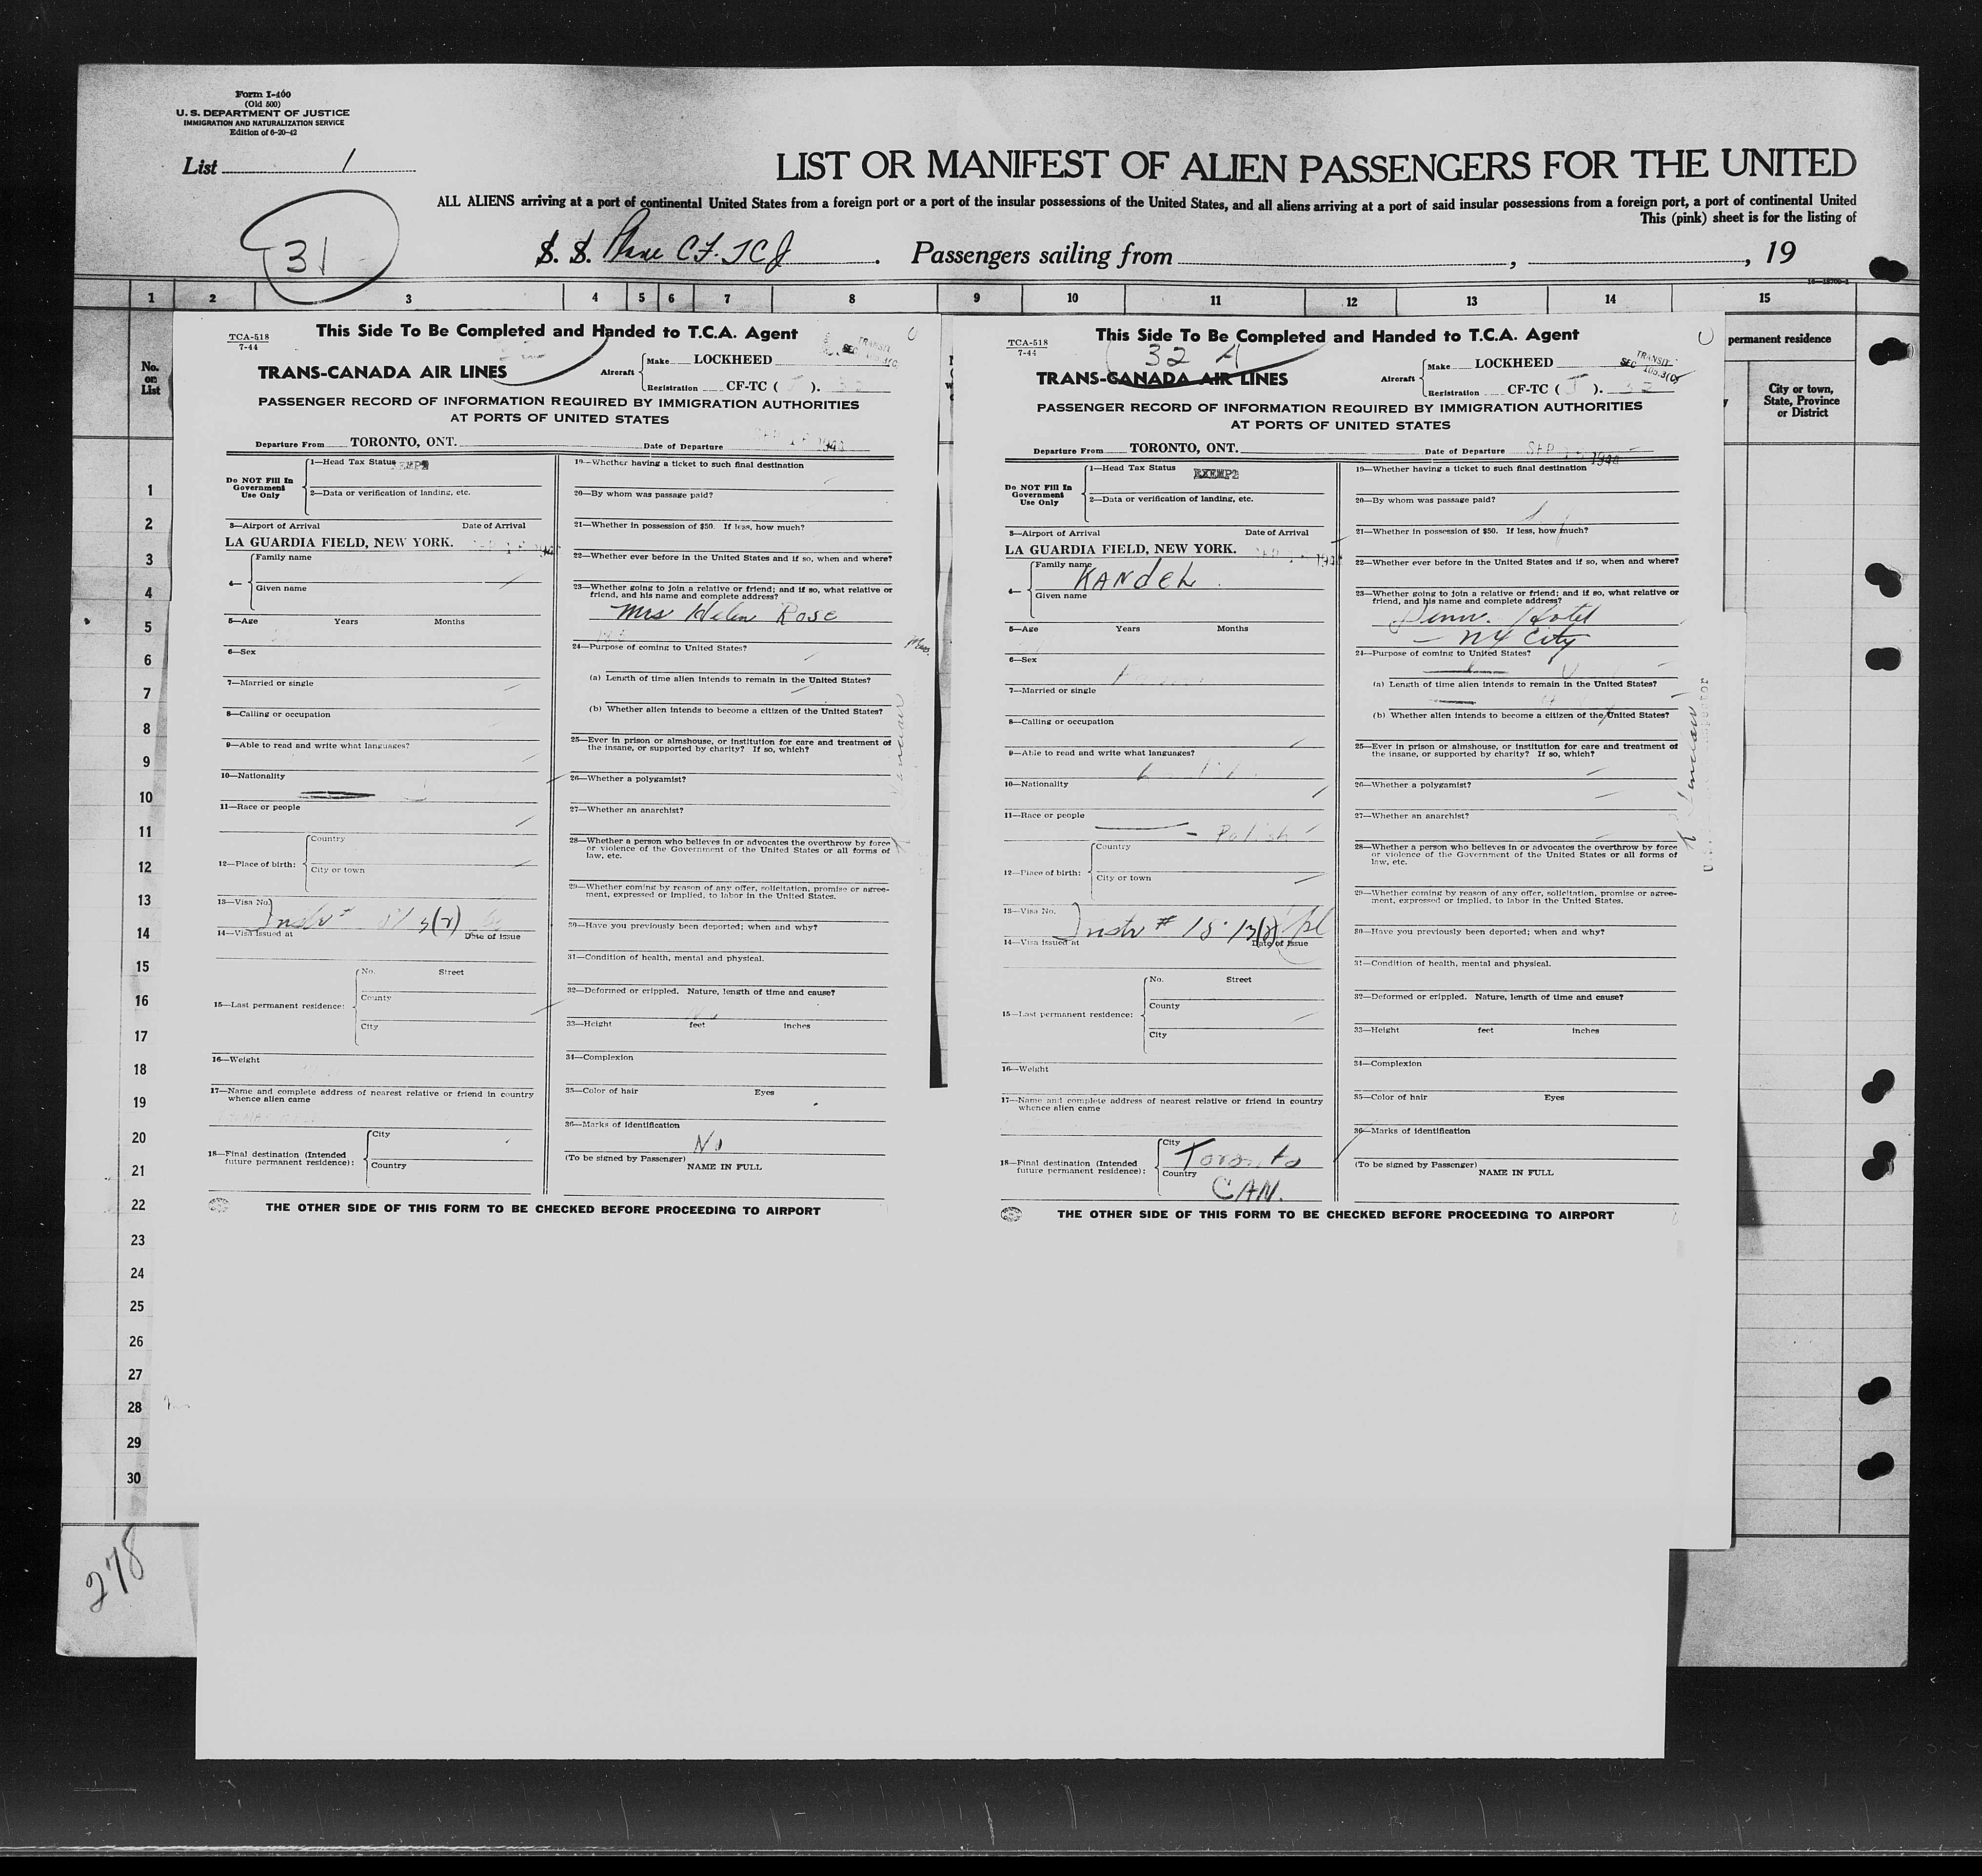 Form I-400
(Old 500)
U. S. DEPARTMENT OF JUSTICE
IMMIGRATION AND NATURALIZATION SERVICE
Edition of 6-20-42
List 1
31
LIST OR MANIFEST OF ALIEN PASSENGERS FOR THE UNITED
ALL ALIENS arriving at a port of continental United States from a foreign port or a port of the insular possessions of the United States, and all aliens arriving at a port of said insular possessions from a foreign port, a port of continental United
This (pink) sheet is for the listing of
S. S. Plane CF. TCJ . Passengers sailing from , , 19
1 2 3 4 5 6 7 8 9 10 11 12 13 14 15
No. on List
permanent residence
City or town, State, Province or District
1
2
3
4
5
6
7
8
9
10
11
12
13
14
15
16
17
18
19
20
21
22
23
24
25
26
27
28
29
30
278
TCA-518
7-44
This Side To Be Completed and Handed to T.C.A. Agent
TRANSIT
SEC
TRANS-CANADA AIR LINES
Aircraft
Make LOCKHEED
Registration CF-TC ( ).
PASSENGER RECORD OF INFORMATION REQUIRED BY IMMIGRATION AUTHORITIES
AT PORTS OF UNITED STATES
Departure From TORONTO, ONT. Date of Departure
Do NOT Fill In Government Use Only
1—Head Tax Status
2—Data or verification of landing, etc.
3—Airport of Arrival Date of Arrival
LA GUARDIA FIELD, NEW YORK.
4—
Family name
Given name
5—Age Years Months
6—Sex
7—Married or single
8—Calling or occupation
9—Able to read and write what languages?
10—Nationality
11—Race or people
12—Place of birth:
Country
City or town
13—Visa No.
14—Visa issued at Date of issue
15—Last permanent residence:
No. Street
County
City
16—Weight
17—Name and complete address of nearest relative or friend in country
whence alien came
18—Final destination (Intended
future permanent residence):
City
Country
19—Whether having a ticket to such final destination
20—By whom was passage paid?
21—Whether in possession of $50. If less, how much?
22—Whether ever before in the United States and if so, when and where?
23—Whether going to join a relative or friend; and if so, what relative or
friend, and his name and complete address?
Mrs Helen Rose
24—Purpose of coming to United States?
(a) Length of time alien intends to remain in the United States?
(b) Whether alien intends to become a citizen of the United States?
25—Ever in prison or almshouse, or institution for care and treatment of
the insane, or supported by charity? If so, which?
26—Whether a polygamist?
27—Whether an anarchist?
28—Whether a person who believes in or advocates the overthrow by force
or violence of the Government of the United States or all forms of
law, etc.
29—Whether coming by reason of any offer, solicitation, promise or agree-
ment, expressed or implied, to labor in the United States.
30—Have you previously been deported; when and why?
31—Condition of health, mental and physical.
32—Deformed or crippled. Nature, length of time and cause?
33—Height feet inches
34—Complexion
35—Color of hair Eyes
36—Marks of identification
No
(To be signed by Passenger) NAME IN FULL
THE OTHER SIDE OF THIS FORM TO BE CHECKED BEFORE PROCEEDING TO AIRPORT
TCA-518
7-44
This Side To Be Completed and Handed to T.C.A. Agent
32 A
TRANSIT
SEC 105.3(c)
TRANS-CANADA AIR LINES
Aircraft
Make LOCKHEED
Registration CF-TC ( J ). 32
PASSENGER RECORD OF INFORMATION REQUIRED BY IMMIGRATION AUTHORITIES
AT PORTS OF UNITED STATES
Departure From TORONTO, ONT. Date of Departure SEP
Do NOT Fill In Government Use Only
1—Head Tax Status EXEMPT
2—Data or verification of landing, etc.
3—Airport of Arrival Date of Arrival
LA GUARDIA FIELD, NEW YORK.
4—
Family name KANdEL
Given name
5—Age Years Months
6—Sex
7—Married or single
8—Calling or occupation
9—Able to read and write what languages?
10—Nationality
11—Race or people
Polish
12—Place of birth:
Country
City or town
13—Visa No.
14—Visa issued at Date of issue
15—Last permanent residence:
No. Street
County
City
16—Weight
17—Name and complete address of nearest relative or friend in country
whence alien came
18—Final destination (Intended
future permanent residence):
City Toronto
Country CAN.
19—Whether having a ticket to such final destination
20—By whom was passage paid?
21—Whether in possession of $50. If less, how much?
22—Whether ever before in the United States and if so, when and where?
23—Whether going to join a relative or friend; and if so, what relative or
friend, and his name and complete address?
Penn. Hotel
— NY City
24—Purpose of coming to United States?
(a) Length of time alien intends to remain in the United States?
(b) Whether alien intends to become a citizen of the United States?
25—Ever in prison or almshouse, or institution for care and treatment of
the insane, or supported by charity? If so, which?
26—Whether a polygamist?
27—Whether an anarchist?
28—Whether a person who believes in or advocates the overthrow by force
or violence of the Government of the United States or all forms of
law, etc.
29—Whether coming by reason of any offer, solicitation, promise or agree-
ment, expressed or implied, to labor in the United States.
30—Have you previously been deported; when and why?
31—Condition of health, mental and physical.
32—Deformed or crippled. Nature, length of time and cause?
33—Height feet inches
34—Complexion
35—Color of hair Eyes
36—Marks of identification
(To be signed by Passenger) NAME IN FULL
THE OTHER SIDE OF THIS FORM TO BE CHECKED BEFORE PROCEEDING TO AIRPORT